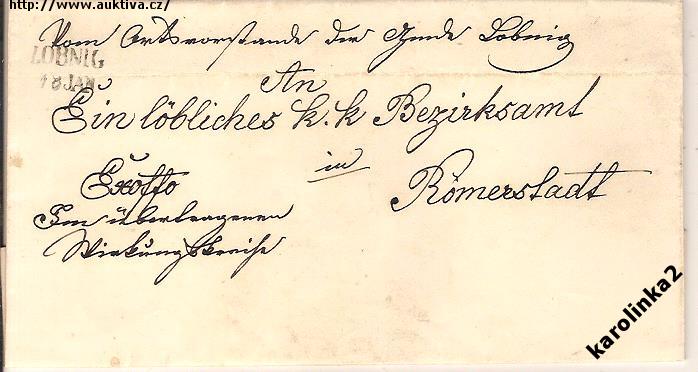 http://www.auktiva.cz/
Vom Ortsvorstande der Gmde Lobnig
LOBNIG
18 JAN
An
Ein löbliches k. k Bezirksamt
in
Exoffo
Römerstadt
Im übertragenen
Wirkungskreise
karolinka2